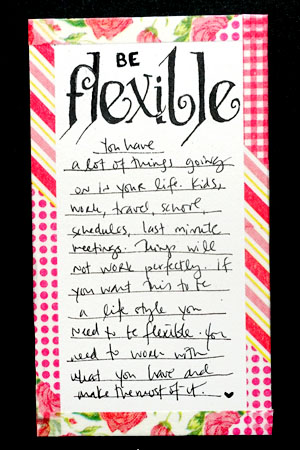 BE
flexible
You have
a lot of things going
on in your life. Kids,
work, travel, school,
schedules, last minute
meetings. Things will
not work perfectly. If
you want this to be
a life style you
need to be flexible. You
need to work with
what you have and
make the most of it. ♥